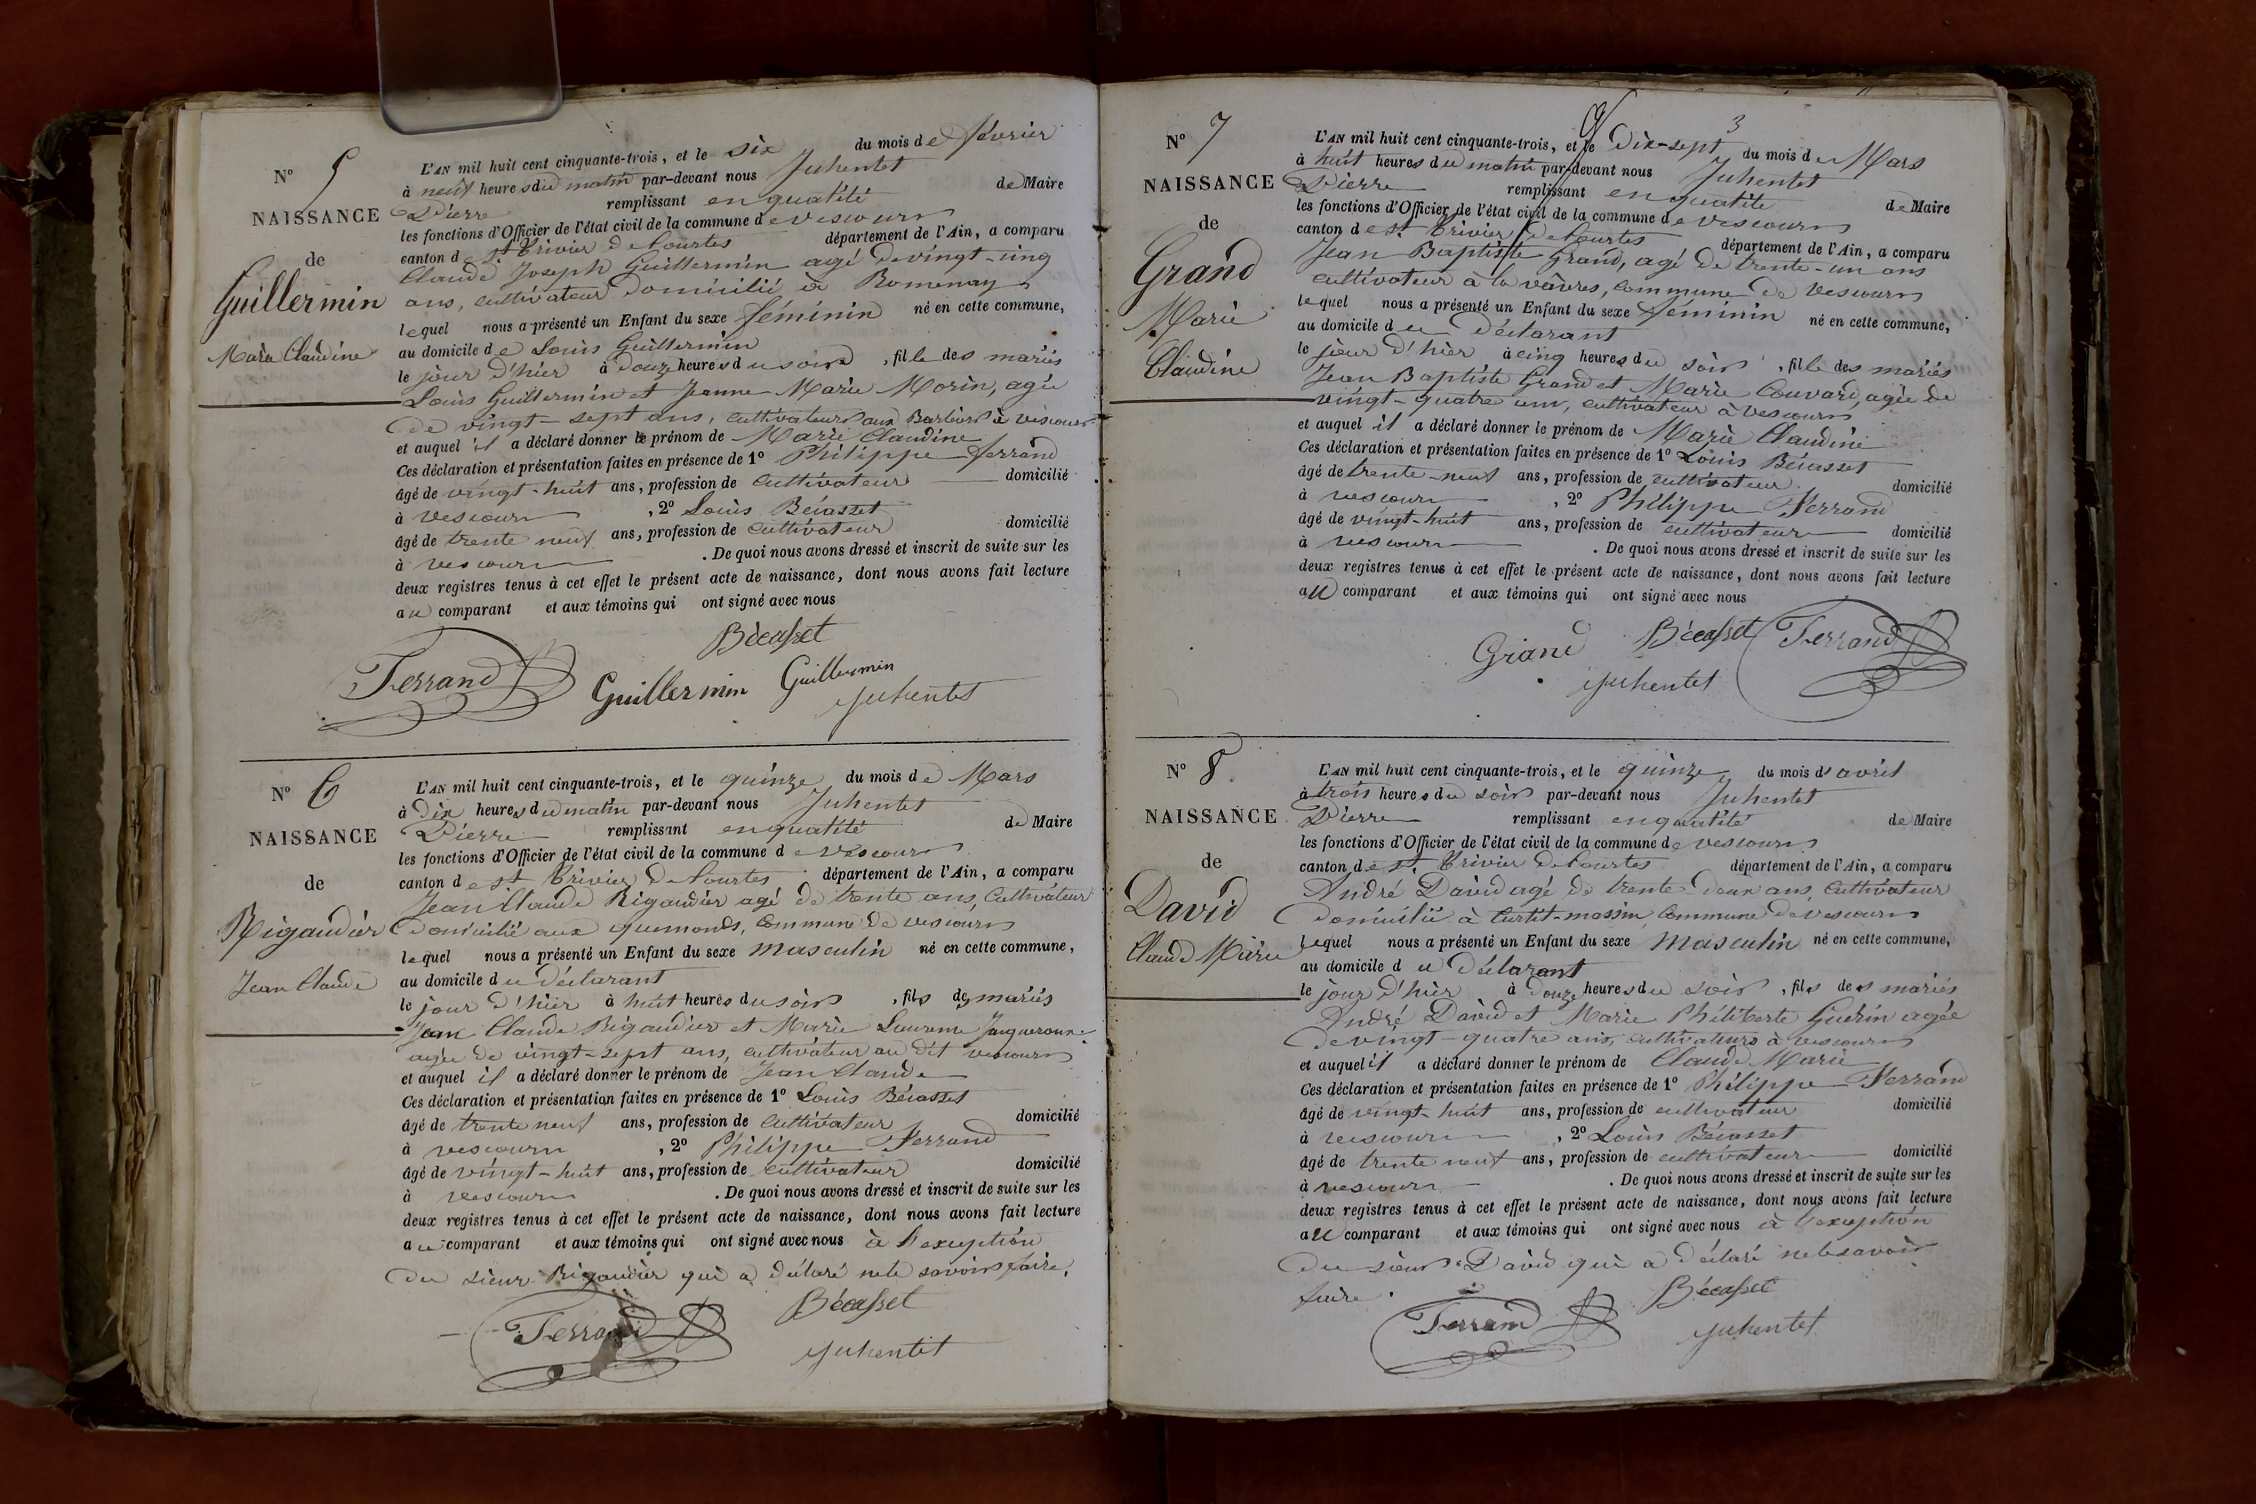 N° 5
NAISSANCE
de
Guillermin
Marie Claudine
L'AN mil huit cent cinquante-trois, et le six du mois de février
à neuf heures du matin par-devant nous Juhentet
Pierre remplissant en qualité de Maire
les fonctions d'Officier de l'état civil de la commune de vescours
canton de St Trivier de Courtes département de l'Ain, a comparu
Claude Joseph Guillermin agé de vingt-cinq
ans, cultivateur domicilié à Romenay
lequel nous a présenté un Enfant du sexe féminin né en cette commune,
au domicile de Louis Guillermin
le jour d'hier à douze heures du soir, fille des mariés
Louis Guillermin et Jeanne Marie Morin, agée
de vingt-sept ans, cultivateurs aux à vescours
et auquel il a déclaré donner le prénom de Marie Claudine
Ces déclaration et présentation faites en présence de 1° Philippe Ferrand
âgé de vingt-huit ans, profession de cultivateur domicilié
à vescours, 2° Louis Bécasset
âgé de trente neuf ans, profession de cultivateur domicilié
à vescours. De quoi nous avons dressé et inscrit de suite sur les
deux registres tenus à cet effet le présent acte de naissance, dont nous avons fait lecture
au comparant et aux témoins qui ont signé avec nous
Bécasset
Ferrand Guillermin Guillermin Juhentet
N° 6
NAISSANCE
de
Rigaudier
Jean Claude
L'AN mil huit cent cinquante-trois, et le quinze du mois de Mars
à dix heures du matin par-devant nous Juhentet
Pierre remplissant en qualité de Maire
les fonctions d'Officier de l'état civil de la commune de vescours
canton de St Trivier de Courtes département de l'Ain, a comparu
Jean Claude Rigaudier agé de trente ans, Cultivateur
domicilié aux quemonds, commune de vescours
lequel nous a présenté un Enfant du sexe masculin né en cette commune,
au domicile du déclarant
le jour d'hier à huit heures du soir, fils des mariés
Jean Claude Rigaudier et Marie Laurence
agée de vingt-sept ans, cultivateur au dit vescours
et auquel il a déclaré donner le prénom de Jean Claude
Ces déclaration et présentation faites en présence de 1° Louis Bécasset
âgé de trente neuf ans, profession de cultivateur domicilié
à vescours, 2° Philippe Ferrand
âgé de vingt-huit ans, profession de cultivateur domicilié
à vescours. De quoi nous avons dressé et inscrit de suite sur les
deux registres tenus à cet effet le présent acte de naissance, dont nous avons fait lecture
au comparant et aux témoins qui ont signé avec nous à l'exception
du sieur Rigaudier qui a déclaré ne le savoir faire.
Ferrand Bécasset
Juhentet
3
N° 7
NAISSANCE
de
Grand
Marie
Claudine
L'AN mil huit cent cinquante-trois, et le dix-sept du mois de Mars
à huit heures du matin par-devant nous Juhentet
Pierre remplissant en qualité de Maire
les fonctions d'Officier de l'état civil de la commune de vescours
canton de St Trivier de Courtes département de l'Ain, a comparu
Jean Baptiste Grand, agé de trente-un ans
cultivateur à la vavres, commune de Vescours
lequel nous a présenté un Enfant du sexe féminin né en cette commune,
au domicile du déclarant
le jour d'hier à cinq heures du soir, fille des mariés
Jean Baptiste Grand et Marie Couvard, agée de
vingt-quatre ans, cultivateur à Vescours
et auquel il a déclaré donner le prénom de Marie Claudine
Ces déclaration et présentation faites en présence de 1° Louis Bécasset
âgé de trente-neuf ans, profession de cultivateur domicilié
à vescours, 2° Philippe Ferrand
âgé de vingt-huit ans, profession de cultivateur domicilié
à vescours. De quoi nous avons dressé et inscrit de suite sur les
deux registres tenus à cet effet le présent acte de naissance, dont nous avons fait lecture
au comparant et aux témoins qui ont signé avec nous
Grand Bécasset Ferrand
Juhentet
N° 8
NAISSANCE
de
David
Claude Marie
L'AN mil huit cent cinquante-trois, et le quinze du mois d'avril
à trois heures du soir par-devant nous Juhentet
Pierre remplissant en qualité de Maire
les fonctions d'Officier de l'état civil de la commune de vescours
canton de St Trivier de Courtes département de l'Ain, a comparu
André David agé de trente-deux ans, cultivateur
domicilié à Curtit-massin, commune de vescours
lequel nous a présenté un Enfant du sexe masculin né en cette commune,
au domicile du déclarant
le jour d'hier à douze heures du soir, fils des mariés
André David et Marie Philiberte Guérin agée
de vingt-quatre ans, cultivateurs à vescours
et auquel il a déclaré donner le prénom de Claude Marie
Ces déclaration et présentation faites en présence de 1° Philippe Ferrand
âgé de vingt-huit ans, profession de cultivateur domicilié
à vescours, 2° Louis Bécasset
âgé de trente neuf ans, profession de cultivateur domicilié
à vescours. De quoi nous avons dressé et inscrit de suite sur les
deux registres tenus à cet effet le présent acte de naissance, dont nous avons fait lecture
au comparant et aux témoins qui ont signé avec nous à l'exception
du sieur David qui a déclaré ne le savoir
faire.
Ferrand Bécasset
Juhentet